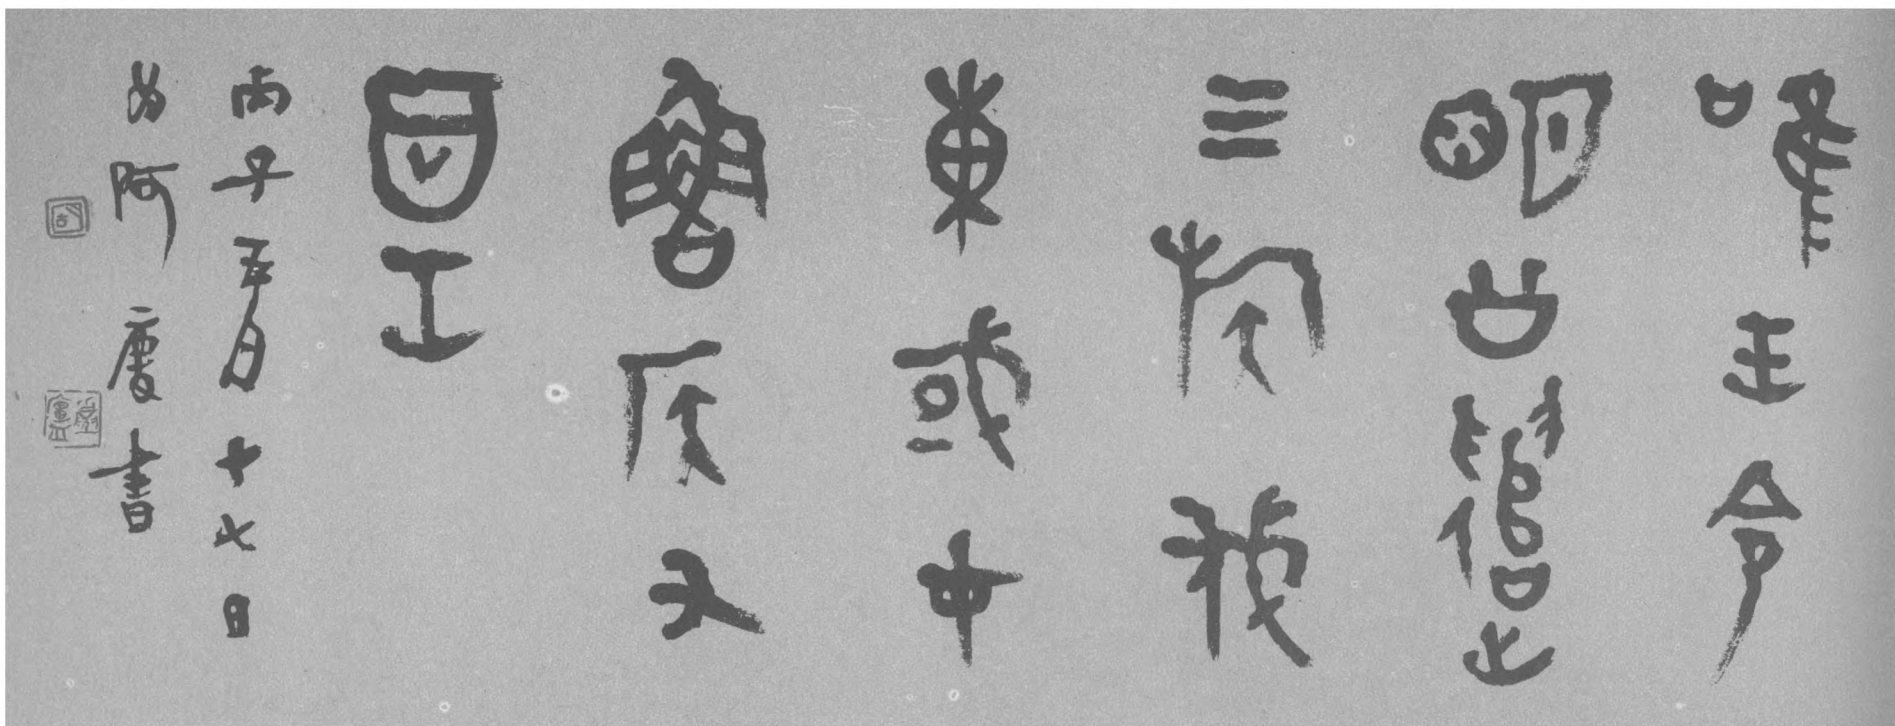 唯王令
明公遣
三族伐
東或才
魯侯又
工
丙子五月十七日
為阿慶書